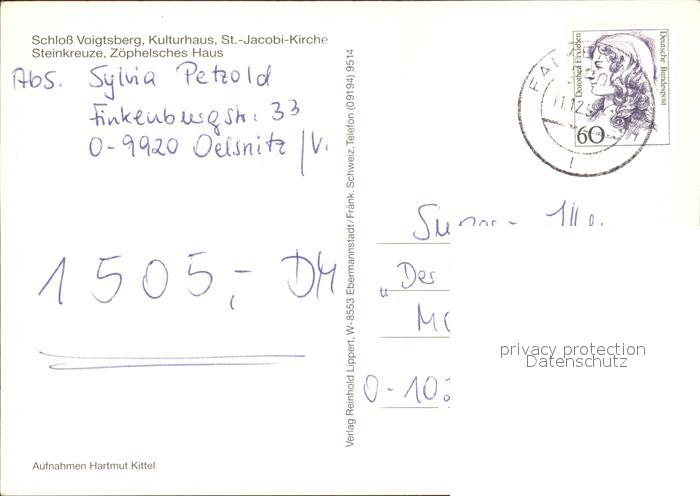 Schloß Voigtsberg, Kulturhaus, St.-Jacobi-Kirche
Steinkreuze, Zöphelsches Haus
Abs. Sylvia Petzold
Finkenburgstr. 33
O-9920 Oelsnitz/V.
1505,- DM
Aufnahmen Hartmut Kittel
Verlag Reinhold Lippert, W-8553 Ebermannstadt/Fränk. Schweiz, Telefon (09194) 9514
Dorothea Erxleben
Deutsche Bundespost
60
11.12.
"Der
O-103
privacy protection
Datenschutz